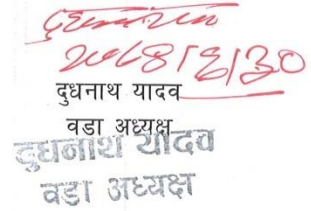 २०७८।६।३०
दुधनाथ यादव
वडा अध्यक्ष
दुधनाथ यादव
वडा अध्यक्ष